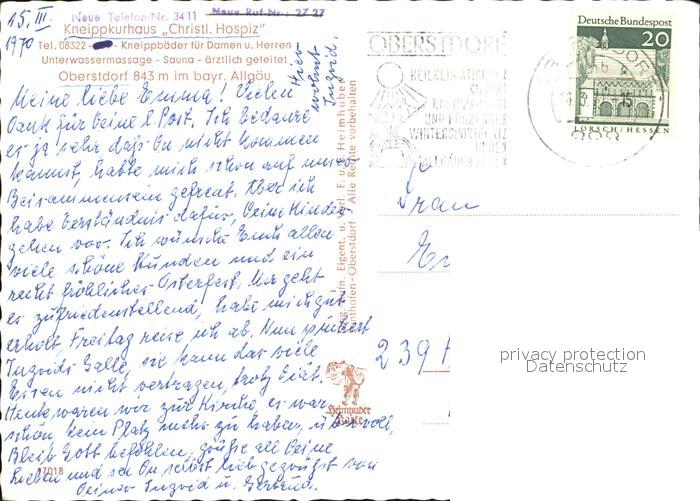 15. III.
1970
Neue Telefon-Nr. 3411
Neue Ruf-Nr.: 27 27
Kneippkurhaus „Christl. Hospiz"
Tel. 08322 - Kneippbäder für Damen u. Herren
Unterwassermassage - Sauna - ärztlich geleitet
Oberstdorf 843 m im bayr. Allgäu
Hier
wohnt
Ingrid.
Meine liebe Emma! Vielen
Dank für Deine l. Post. Ich bedaure
es ja sehr daß Du nicht kommen
kannst, hatte mich schon auf unser
Beisammensein gefreut. Aber ich
habe Verständnis dafür, Deine Kinder
gehen vor. Ich wünsche Euch allen
viele schöne Stunden und ein
recht fröhliches Osterfest. Mir geht
es zufriedenstellend, habe mich gut
erholt. Freitag reise ich ab. Nun spürt
Ingrids Galle, sie kann das viele
Essen nicht vertragen, trotz Diät.
Heute waren wir zur Kirche es war
schön kein Platz mehr zu haben, voll,
Bleib Gott befohlen, grüße all Deine
Lieben und sei Du selbst lieb gegrüßt von
Deiner Ingrid u. Gertrud.
17018
Eigent. u. Verl. F. u. S. Heimhuber
Sonthofen-Oberstdorf Alle Rechte vorbehalten
Heimhuber
Karte
OBERSTDORF
HEILKLIMATISCHER
KURORT
KNEIPPKURORT
UND FÜHRENDER
WINTERSPORTPLATZ
IN DEN
ALLGÄUER ALPEN
Deutsche Bundespost
20
LORSCH/HESSEN
Frau
239
privacy protection
Datenschutz